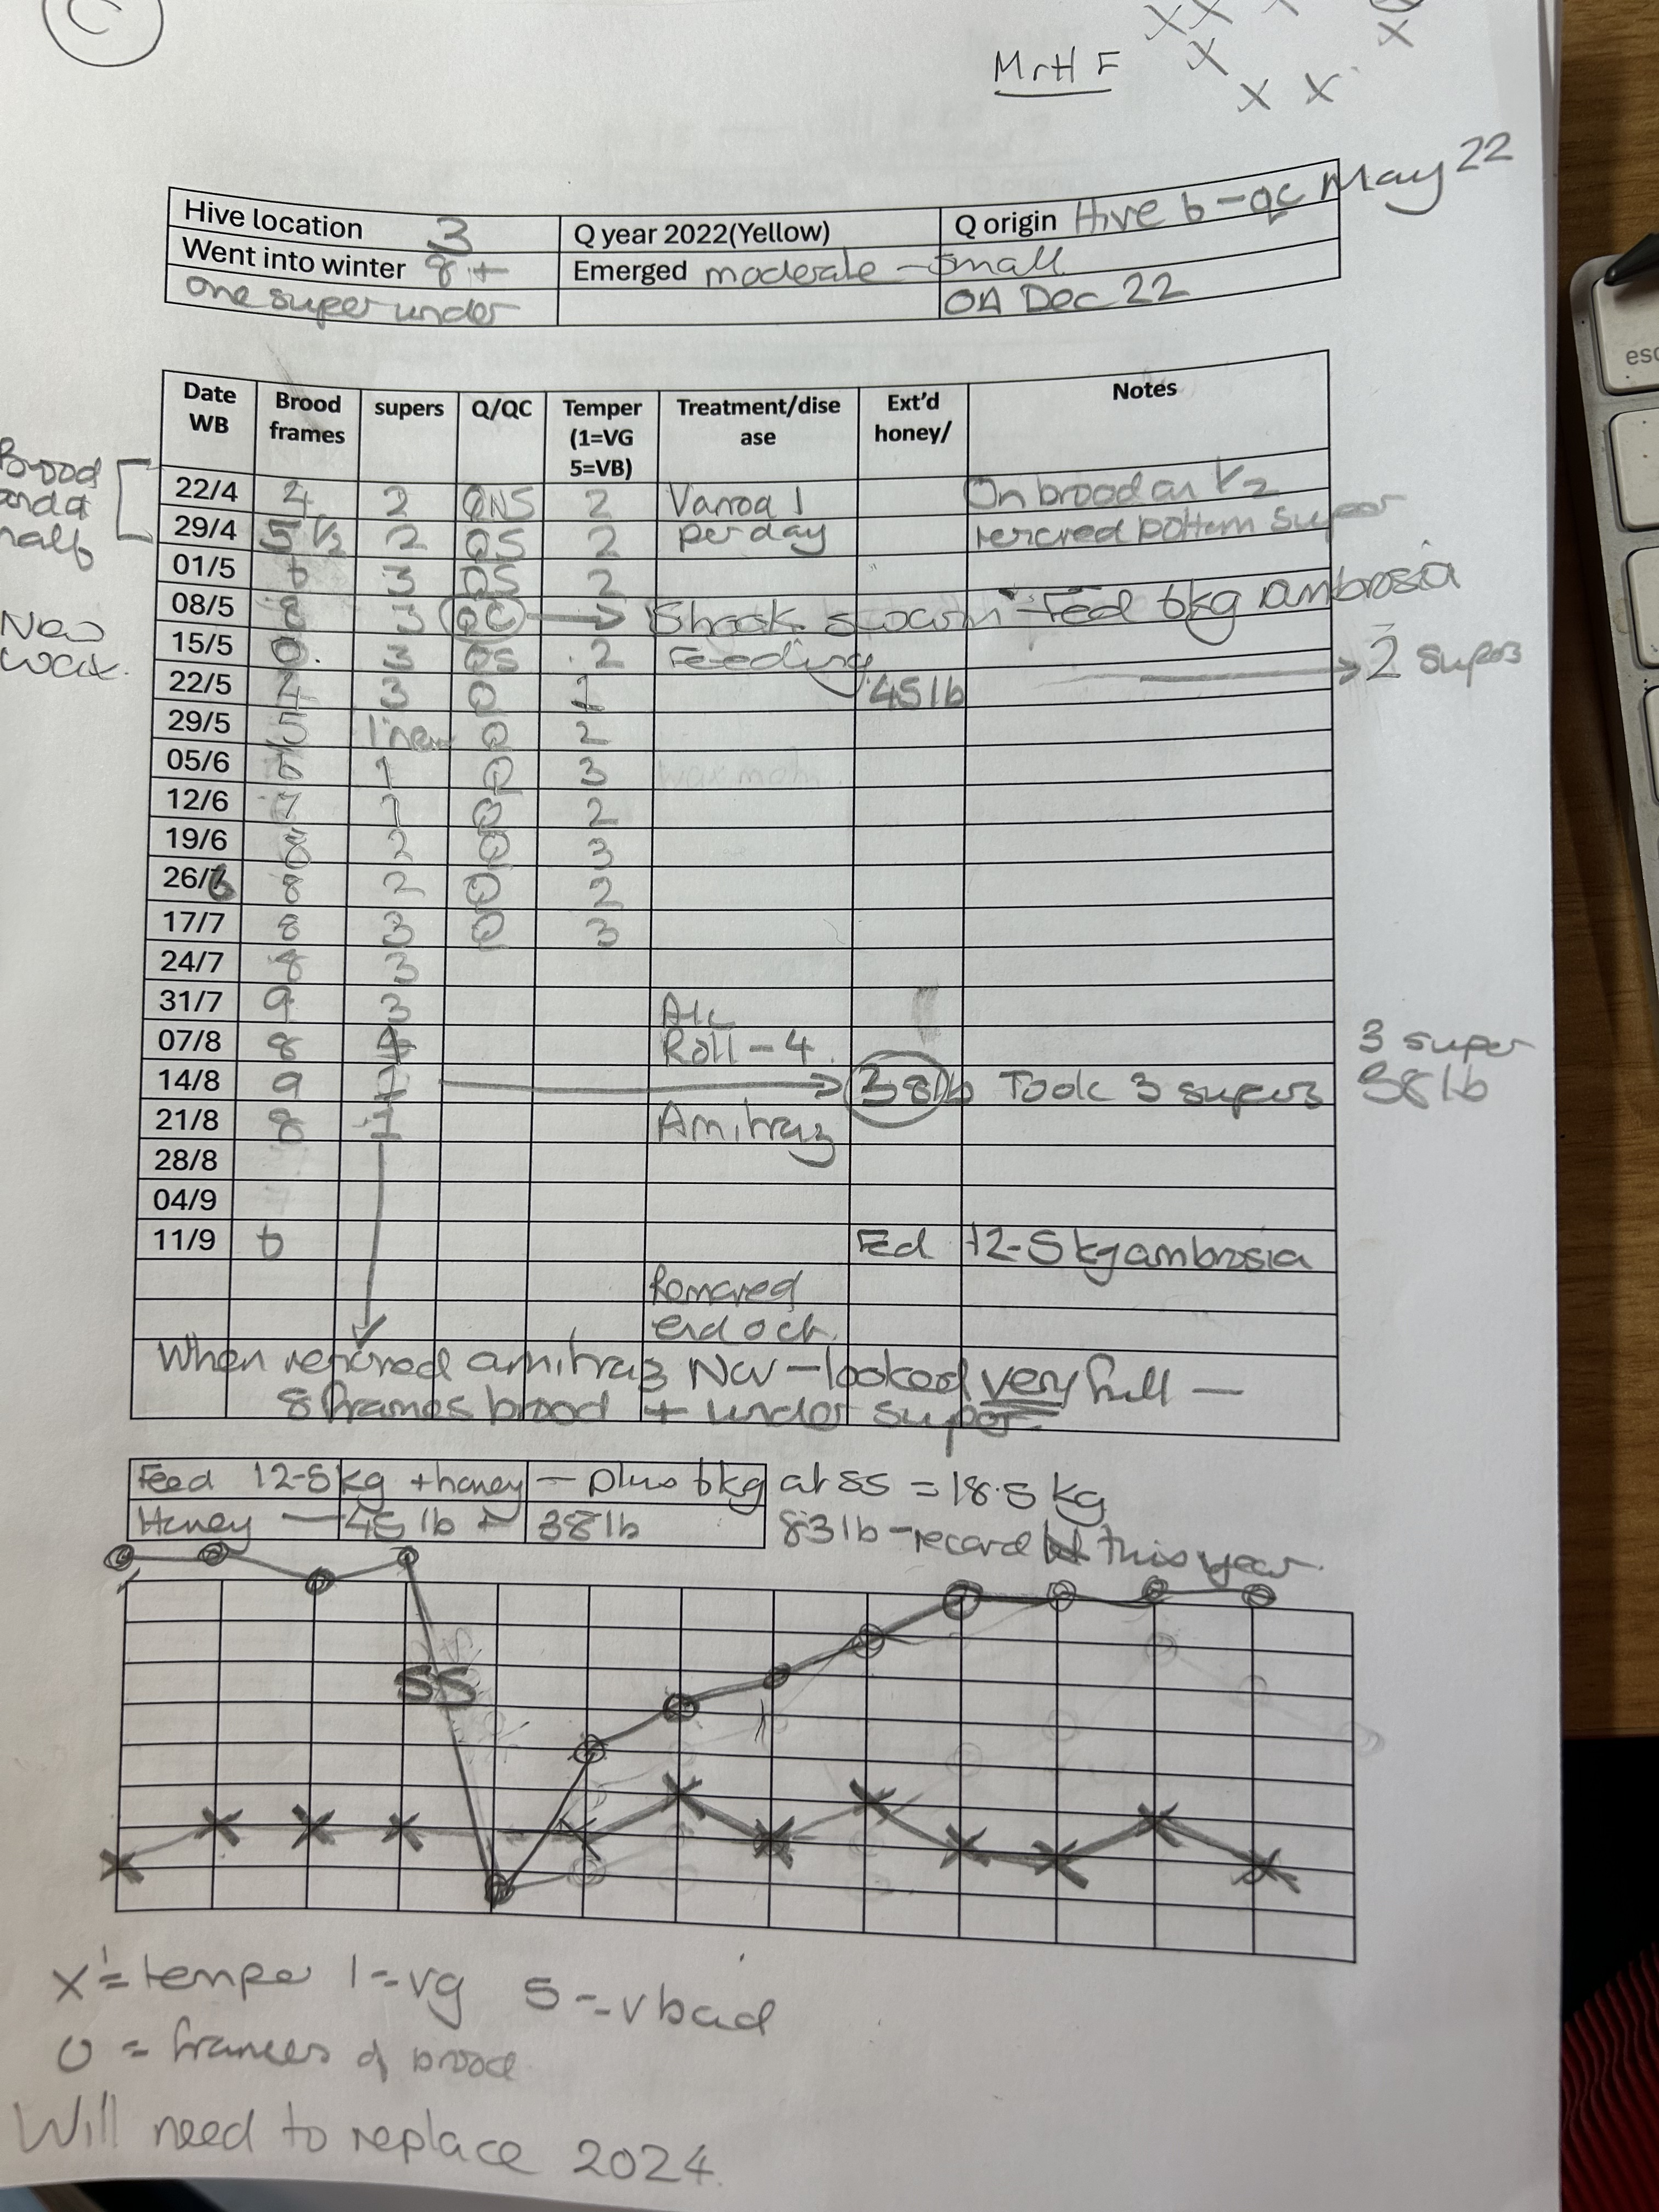 C
MrH F
X X X X
X
X X
Hive location 3 Q year 2022(Yellow) Q origin Hive 6 - qc May 22
Went into winter 8+ Emerged moderate - small
one super under OA Dec 22
Date WB Brood frames supers Q/QC Temper (1=VG 5=VB) Treatment/disease Ext'd honey/ Notes
Brood and a half
22/4 4 2 QNS 2 Varroa 1 On brood an 1/2
29/4 5 1/2 2 QS 2 per day removed bottom super
01/5 6 3 QS 2
08/5 8 3 QC → Shook swarm - Feed 6kg ambrosia
New wax.
15/5 0. 3 QS 2 Feeding → 2 supers
22/5 4 3 Q 1 45lb
29/5 5 1 new Q 2
05/6 6 1 Q 3 wax moth
12/6 7 1 Q 2
19/6 8 2 Q 3
26/6 8 2 Q 2
17/7 8 3 Q 3
24/7 8 3
31/7 9 3 Alc
07/8 8 4 Roll - 4 3 super
14/8 9 1 → 38lb Took 3 supers 38lb
21/8 8 1 Amitraz
28/8
04/9
11/9 6 Fed 12-5kg ambrosia
Removed
end oct.
When removed amitraz Nov - looked very full -
8 frames brood + under super
Feed 12-5kg + honey - plus 6kg at SS = 18.5 kg
Honey - 45 lb + 38lb 83lb - record this year
SS
X = temper 1=vg 5=v bad
O = frames of brood
Will need to replace 2024.
esc